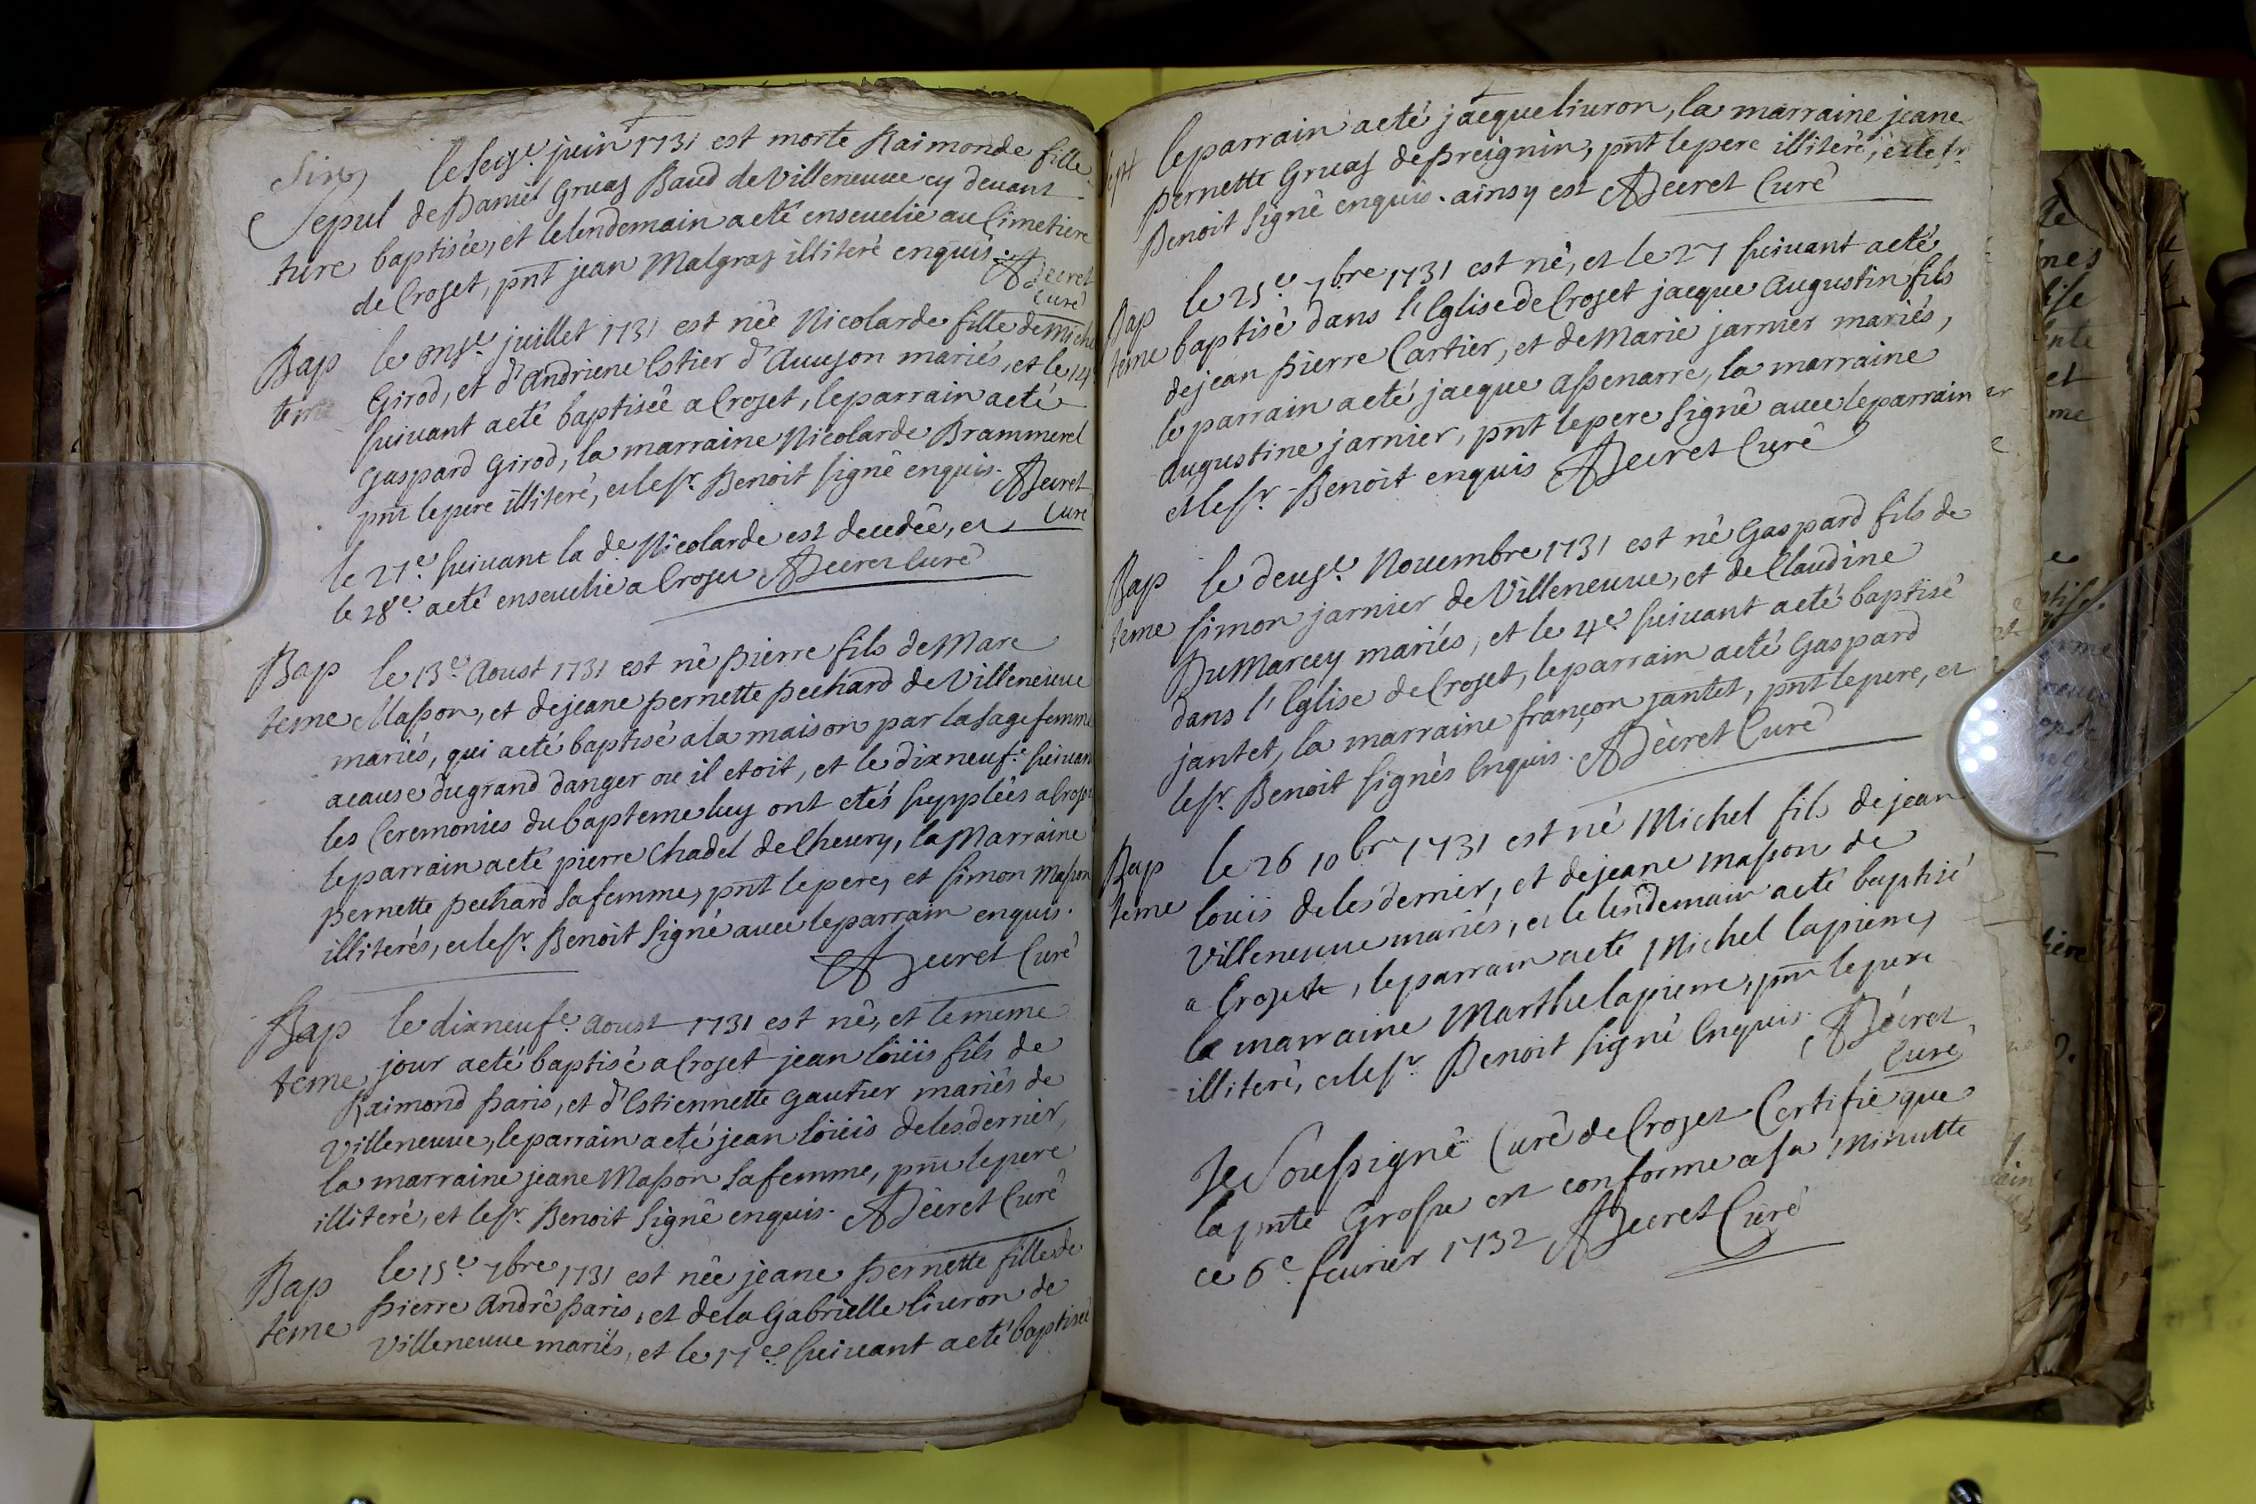 Six
Sepul
ture
le seize. juin 1731 est morte Raimonde fille
de Daniel Gruaz Baud de Villeneuve cy devant
baptisée, et le lendemain a eté ensevelie au Cimetiere
de Crozet, pnt jean Malgraz illiteré enquis. ADecret
Curé
Bap
teme
le onze. juillet 1731 est née Nicolarde fille de Miche
Girod, et d'Andriene Estier d'Avuzon mariés, et le 14
suivant a eté baptisée a Crozet, le parrain a eté
Gaspard Girod, la marraine Nicolarde Brammerel
pnt le pere illiteré, et le Sr. Benoit signé enquis. ADecret
Curé
le 27e. suivant la de Nicolarde est decedée, et
le 28e. a eté ensevelie a Crozet ADecret Curé
Bap
teme
le 13e. Aoust 1731 est né pierre fils de Marc
Masson, et de jeane pernette pechard de Villeneuve
mariés, qui a eté baptisé a la maison par la sage femme
a cause du grand danger ou il etoit, et le dixneufe. suivant
les Ceremonies du bapteme luy ont etés supplées a Crozet
le parrain a eté pierre Chadel de Chevry, la Marraine
pernette pechard sa femme, pnt le pere, et simon Masson
illiterés, et le Sr. Benoit signé avec le parrain enquis.
ADecret Curé
Bap
teme
le dixneufe. Aoust 1731 est né, et le meme
jour a eté baptisé a Crozet jean loüis fils de
Raimond paris, et d'Estiennette gautier mariés de
Villeneuve, le parrain a eté jean loüis delesdernier,
la marraine jeane Masson sa femme, pnt le pere
illiteré, et le Sr. Benoit signé enquis. ADecret Curé
Bap
teme
le 15e. 7bre 1731 est née jeane pernette fille de
pierre André paris, et de la Gabrielle livron de
Villeneuve mariés, et le 17e. suivant a eté baptisée
sept
le parrain a eté jacque livron, la marraine jeane
pernette Gruaz de preignin, pnt le pere illiteré, et le Sr
Benoit signé enquis. ainsy est ADecret Curé
Bap
teme
le 25e. 7bre 1731 est né, et le 27 suivant a eté
baptisé dans l'Eglise de Crozet jacque Augustin fils
de jean pierre Cartier, et de Marie jarnier mariés,
le parrain a eté jacque Assenarre, la marraine
augustine jarnier, pnt le pere signé avec le parrain
et le Sr. Benoit enquis ADecret Curé
Bap
teme
le deuze. Novembre 1731 est né Gaspard fils de
simon jarnier de Villeneuve, et de Claudine
DuMarcey mariés, et le 4e suivant a eté baptisé
dans l'Eglise de Crozet, le parrain a eté Gaspard
jantet, la marraine françon jantet, pnt le pere, et
le Sr. Benoit signés Enquis. ADecret Curé
Bap
teme
le 26 10br 1731 est né Michel fils de jean
loüis delesdernier, et de jeane masson de
Villeneuve mariés, et le lendemain a eté baptisé
a Crozet, le parrain a eté Michel lapierre,
la marraine Marthe lapierre, pnt le pere
illiteré, et le Sr Benoit signé Enquis. ADecret
Curé
Je Soussigné Curé de Crozet Certifie que
la pnte Grosse est conforme a sa Minutte
ce 6e. fevrier 1732 ADecret Curé